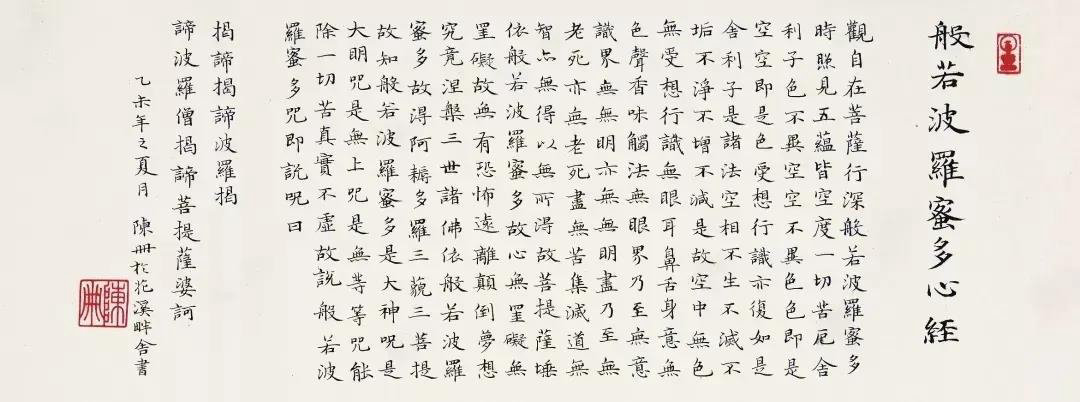 般若波羅蜜多心経
觀自在菩薩行深般若波羅蜜多
時照見五蘊皆空度一切苦厄舍
利子色不異空空不異色色即是
空空即是色受想行識亦復如是
舍利子是諸法空相不生不滅不
垢不淨不增不減是故空中無色
無受想行識無眼耳鼻舌身意無
色聲香味觸法無眼界乃至無意
識界無無明亦無無明盡乃至無
老死亦無老死盡無苦集滅道無
智亦無得以無所得故菩提薩埵
依般若波羅蜜多故心無罣礙無
罣礙故無有恐怖遠離顛倒夢想
究竟涅槃三世諸佛依般若波羅
蜜多故得阿耨多羅三藐三菩提
故知般若波羅蜜多是大神呪是
大明呪是無上呪是無等等呪能
除一切苦真實不虛故說般若波
羅蜜多呪即說呪曰
揭諦揭諦波羅揭
諦波羅僧揭諦菩提薩婆訶
乙未年之夏月 陳冊於花溪畔舍書
陳冊